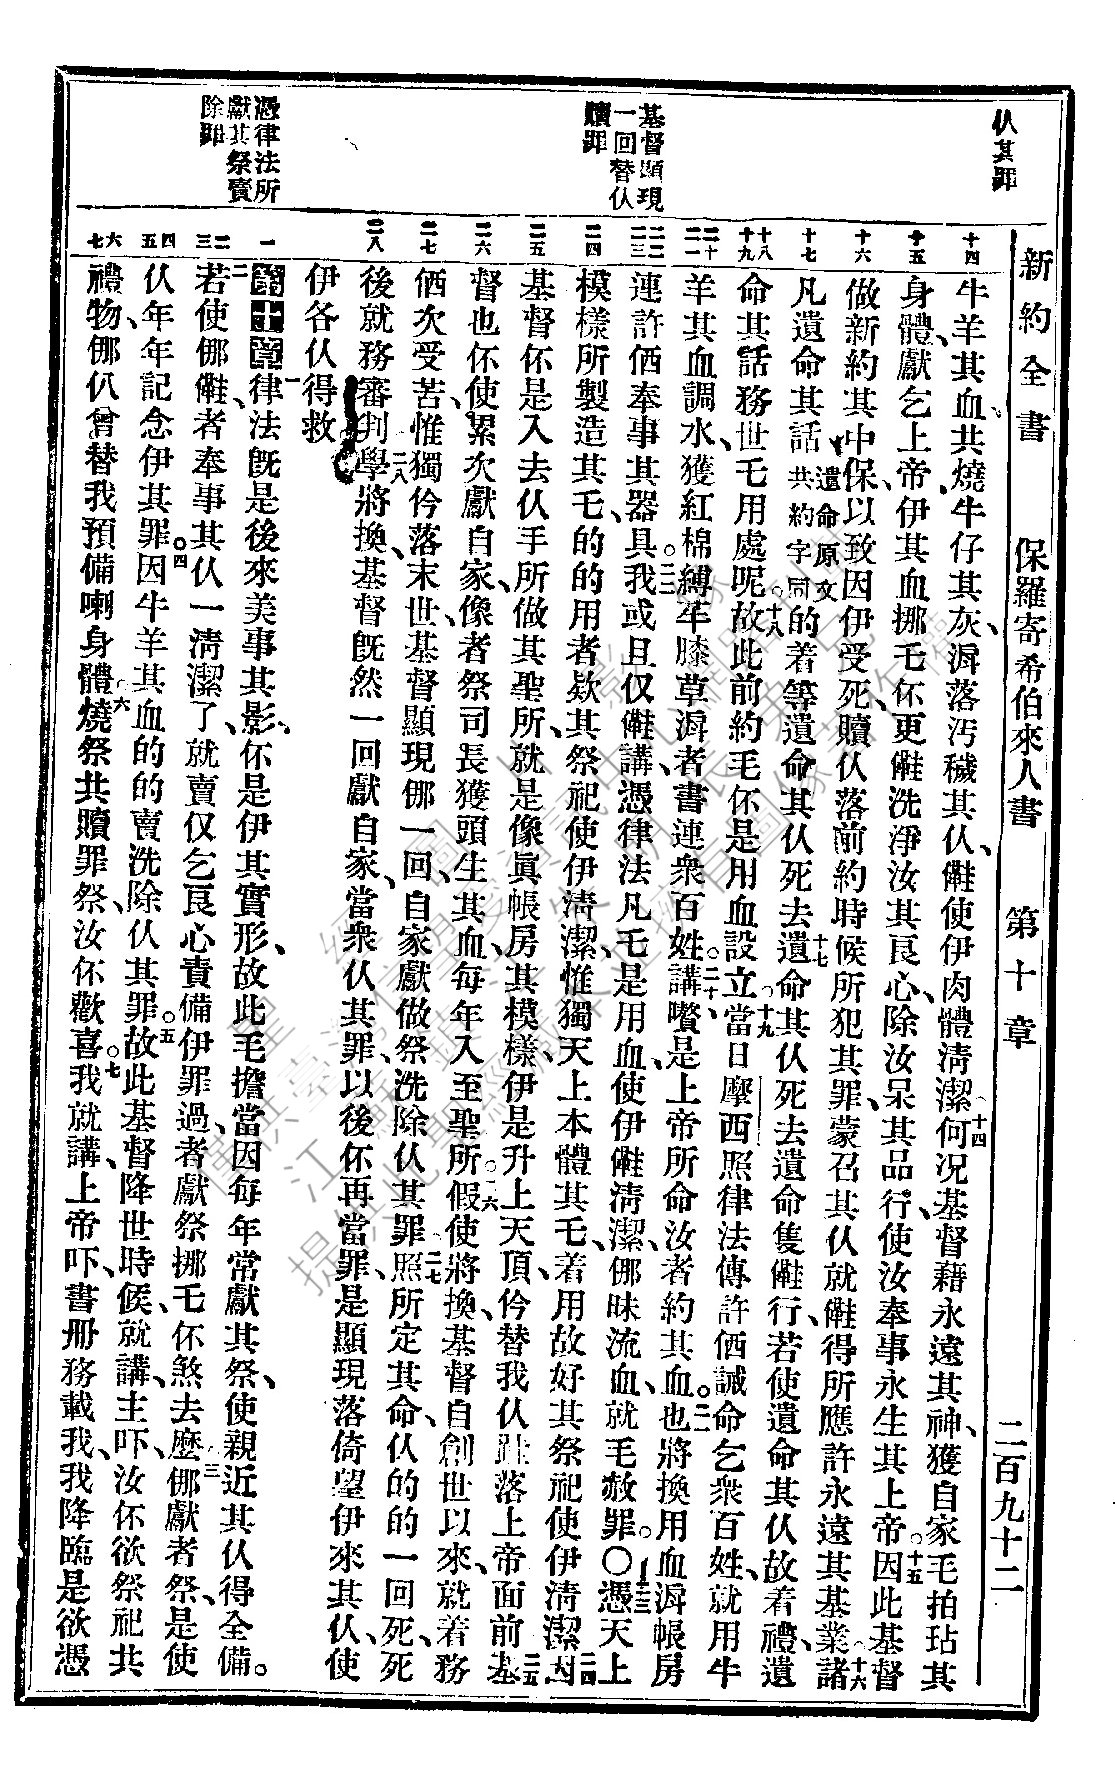 新約全書 保羅寄希伯來人書 第十章 二百九十二
仈其罪
基督顯現
一回替仈
贖罪
憑律法所
獻其祭賣
除罪
十四 十五 十六 十七 十八 十九 二十 二一 二二 二三 二四 二五 二六 二七 二八 一 二 三 四 五 六 七
牛羊其血、共燒牛仔其灰、潯落汚穢其仈、㑚使伊肉體淸潔、十四何况基督藉永遠其神、獲自家毛拍玷其
身體、獻乞上帝、伊其血挪毛伓更㑚洗淨汝其良心、除汝呆其品行、使汝奉事永生其上帝。十五因此基督
做新約其中保、以致因伊受死、贖仈落前約時候所犯其罪、蒙召其仈就㑚得所應許永遠其基業、十六諸
凡遺命其話、遺命原文共約字同的着等遺命其仈死去、十七遺命其仈死去、遺命隻㑚行、若使遺命其仈故着、禮遺
命其話務世毛用處呢。十八故此前約毛伓是用血設立、十九當日摩西照律法傳許仛誡命乞衆百姓、就用牛
羊其血調水、獲紅棉縛牢膝草、潯者書連衆百姓。二十講、嚽是上帝所命汝者約其血。二一也將換用血潯帳房
連許仛奉事其器具。二二我或且仅㑚講、憑律法凡毛是用血、使伊㑚淸潔、㑚昧流血、就毛赦罪。〇二三憑天上
模樣所製造其毛、的的用者欵其祭祀使伊淸潔、惟獨天上本體其毛、着用故好其祭祀使伊淸潔。二四因
基督伓是入去仈手所做其聖所、就是像眞帳房其模樣、伊是升上天頂、伶替我仈跓落上帝面前、二五基
督也伓使累次獻自家、像者祭司長獲頭生其血、每年入至聖所。二六假使將換、基督自創世以來、就着務
仛次受苦、惟獨伶落末世、基督顯現㑚一回、自家獻做祭、洗除仈其罪、二七照所定其命、仈的的一回死、死
後就務審判、二八學將換、基督旣然一回獻自家、當衆仈其罪、以後伓再當罪、是顯現落倚望伊來其仈、使
伊各仈得救
第十章 一律法旣是後來美事其影、伓是伊其實形、故此毛擔當因每年常獻其祭、使親近其仈得全備。
二若使㑚㑚者奉事其仈一淸潔了、就賣仅乞良心責備伊罪過、者獻祭挪毛伓煞去麽、三㑚獻者祭、是使
仈年年記念伊其罪。四因牛羊其血的的賣洗除仈其罪。五故此基督降世時候、就講、主吓、汝伓欲祭祀共
禮物、㑚仈曾替我預備嚹身體、六燒祭共贖罪祭、汝伓歡喜。七我就講、上帝吓、書册務載我、我降臨是欲憑